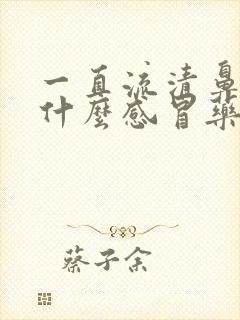 一直流清鼻
什麼感冒藥
蔡子余